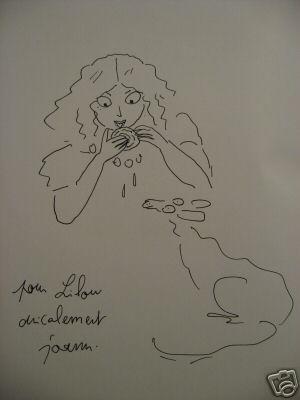 pour Lilou
amicalement
joann.